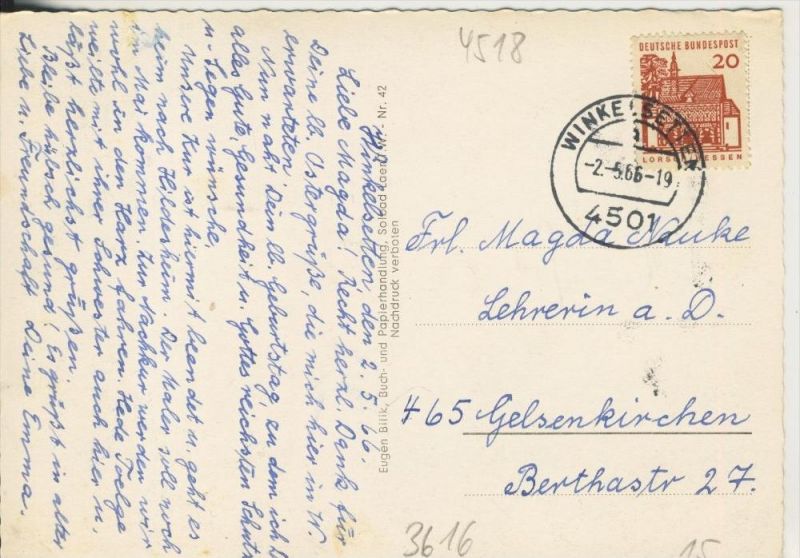 4518
DEUTSCHE BUNDESPOST
20
LORSCH HESSEN
WINKELSETTEN
-2.-5.66-19
4501
Winkelsetten, den 2.5.66.
Liebe Magda! Recht herzl. Dank für
Deine lb. Ostergrüße, die mich hier in W.
erwarteten. 
Nun naht Dein lb. Geburtstag, zu dem ich D
alles Gute, Gesundheit u. Gottes reichsten Schutz
u. Segen wünsche.
Unsere Kur ist hiermit beendet u. geht es
heim nach Hildesheim. Der Maler soll noch
im Mai kommen. Zur Nachkur werden wir
wohl in den Harz fahren. Hede
weilte mit ihrer Schwester auch hier u.
läßt herzlichst grüßen.
Bleibe hübsch gesund! Es grüßt in alter
Liebe u. Freundschaft Deine Emma.
Eugen Bilik, Buch- und Papierhandlung, Solbad Laer T.W. - Nr. 42
Nachdruck verboten
Frl. Magda Nauke
Lehrerin a. D.
465 Gelsenkirchen
Berthastr 27.
3616
15